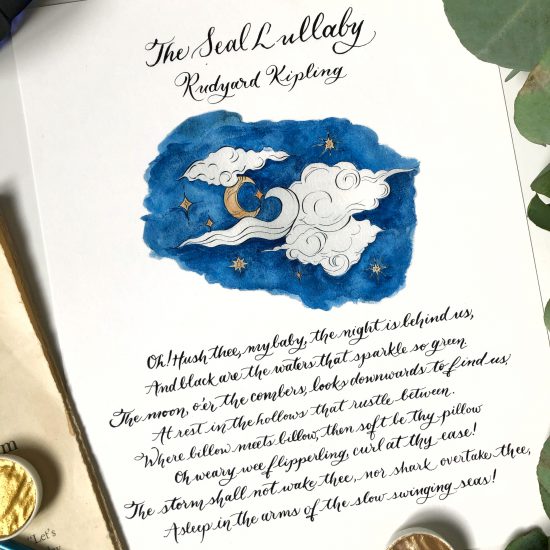 The Seal Lullaby
Rudyard Kipling
Oh! Hush thee, my baby, the night is behind us,
And black are the waters that sparkle so green.
The moon, o'er the combers, looks downwards to find us,
At rest in the hollows that rustle between.
Where billow meets billow, then soft be thy pillow
Oh weary wee flipperling, curl at thy ease!
The storm shall not wake thee, nor shark overtake thee,
Asleep in the arms of the slow swinging seas!
m
"Let's